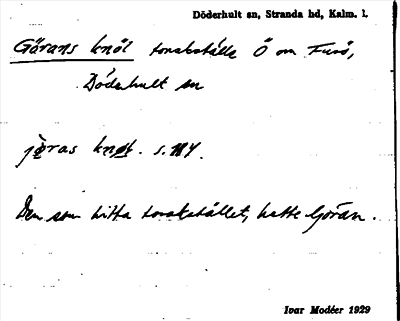 Döderhult sn, Stranda hd, Kalm. l.
Görans knöl torskställe Ö om Furö,
Döderhult sn
jöras knøl. s. 114.
Den som hitta torskstället, hette Göran.
Ivar Modéer 1929